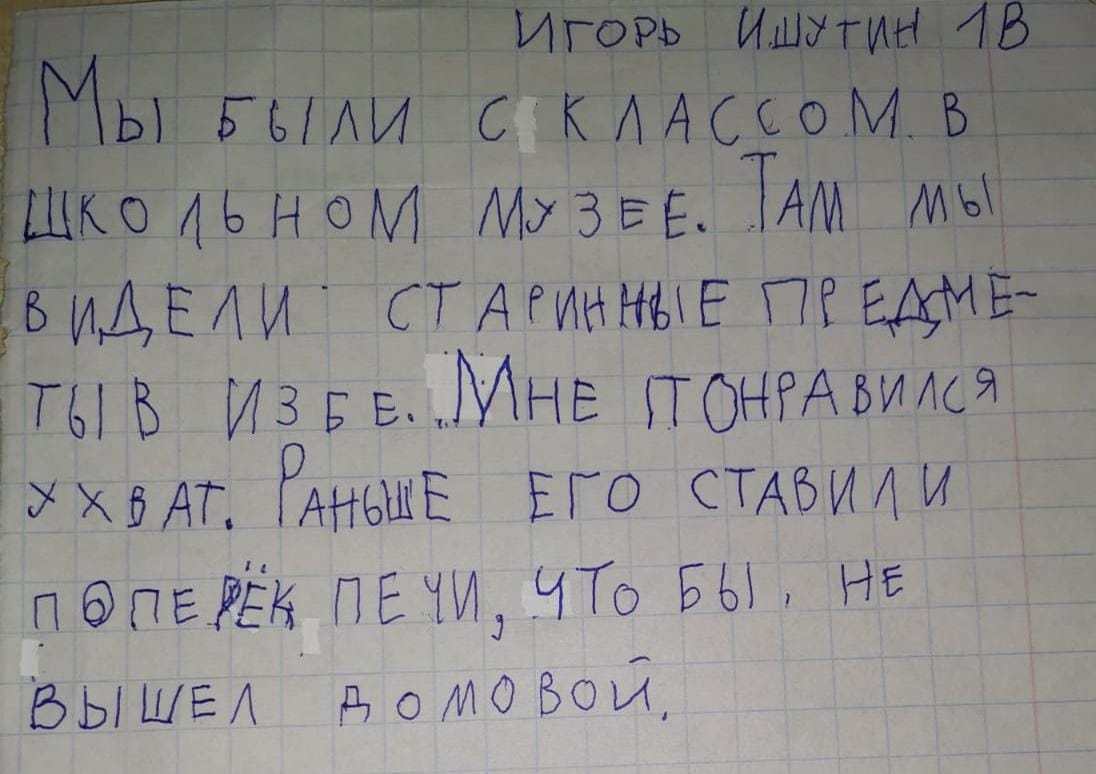 ИГОРЬ ИШУТИН 1В
МЫ БЫЛИ С КЛАССОМ В
ШКОЛЬНОМ МУЗЕЕ. ТАМ МЫ
ВИДЕЛИ СТАРИННЫЕ ПРЕДМЕ-
ТЫ В ИЗБЕ. МНЕ ПОНРАВИЛСЯ
УХВАТ. РАНЬШЕ ЕГО СТАВИЛИ
ПОПЕРЁК ПЕЧИ, ЧТО БЫ НЕ
ВЫШЕЛ ДОМОВОЙ.